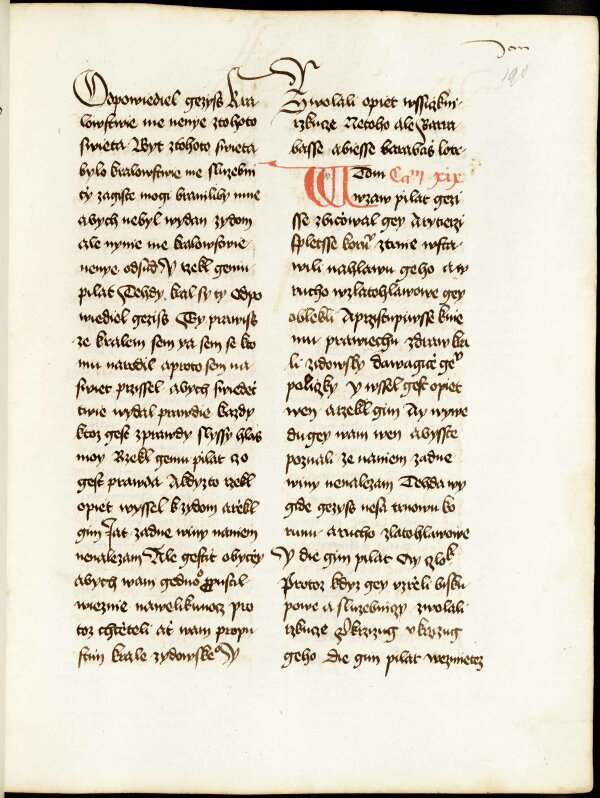 Jan
190
Odpowiediel gezyss Kra
lowstwie me nenye ztohoto
swieta Byt ztohoto swieta
bylo kralowstwie me sluzebni
cy zagiste mogi branilíby mne
abych nebyl wydan zydom
ale nynie me kralowstwie
nenye odsud Y rzekl gemu
pilat Tehdy kral sy ty Odpo
wiediel gezyss Ty prawiss
ze kralem sem ya sem se kto
mu narodil aproto sem na
swiet przissel abych swiedec
twie wydal prawdie kazdy
ktoz gest zprawdy slyssy hlas
moy Rzekl gemu pilat Czo
gest prawda Akdyzto rzekl
opiet wyssel kzydom arzekl
gim Jat zadne winy naniem
nenalezam Ale gestit obyczey
abych wam gednoho propustil
wieznie nawelikunocz pro
toz chteteli at wam propu
stim krale zydowskeho Y
zwolali opiet wssiczkni
rzkucze Netoho ale Barra
basse abiesse barabas lotr
Tdom Cam xix
wzaw pilat gezi
sse zbiczowal gey Arytierzi
spletsse korunu ztrnie wsta
wili nahlawu geho aw
rucho wzlatohlawowe gey
oblekli Aprzstupiwsse knie
mu prawiechu zdraw kra
li zidowsky dawagice gemu
policzky y wssel gest opiet
wen arzekl gim Ay wywe
du gey wam wen abysste
poznali ze naniem zadne
winy nenalezam Tehda wy
gide gezyss nesa trnowu ko
runu arucho zlatohlawowe
Y die gim pilat Ay czlowiek
Protoz kdyz gey uzreli bisku
powe a sluzebniczy zwolali
rzkucze Ukrzizug ukrzizug
geho Die gim pilat wezmietez